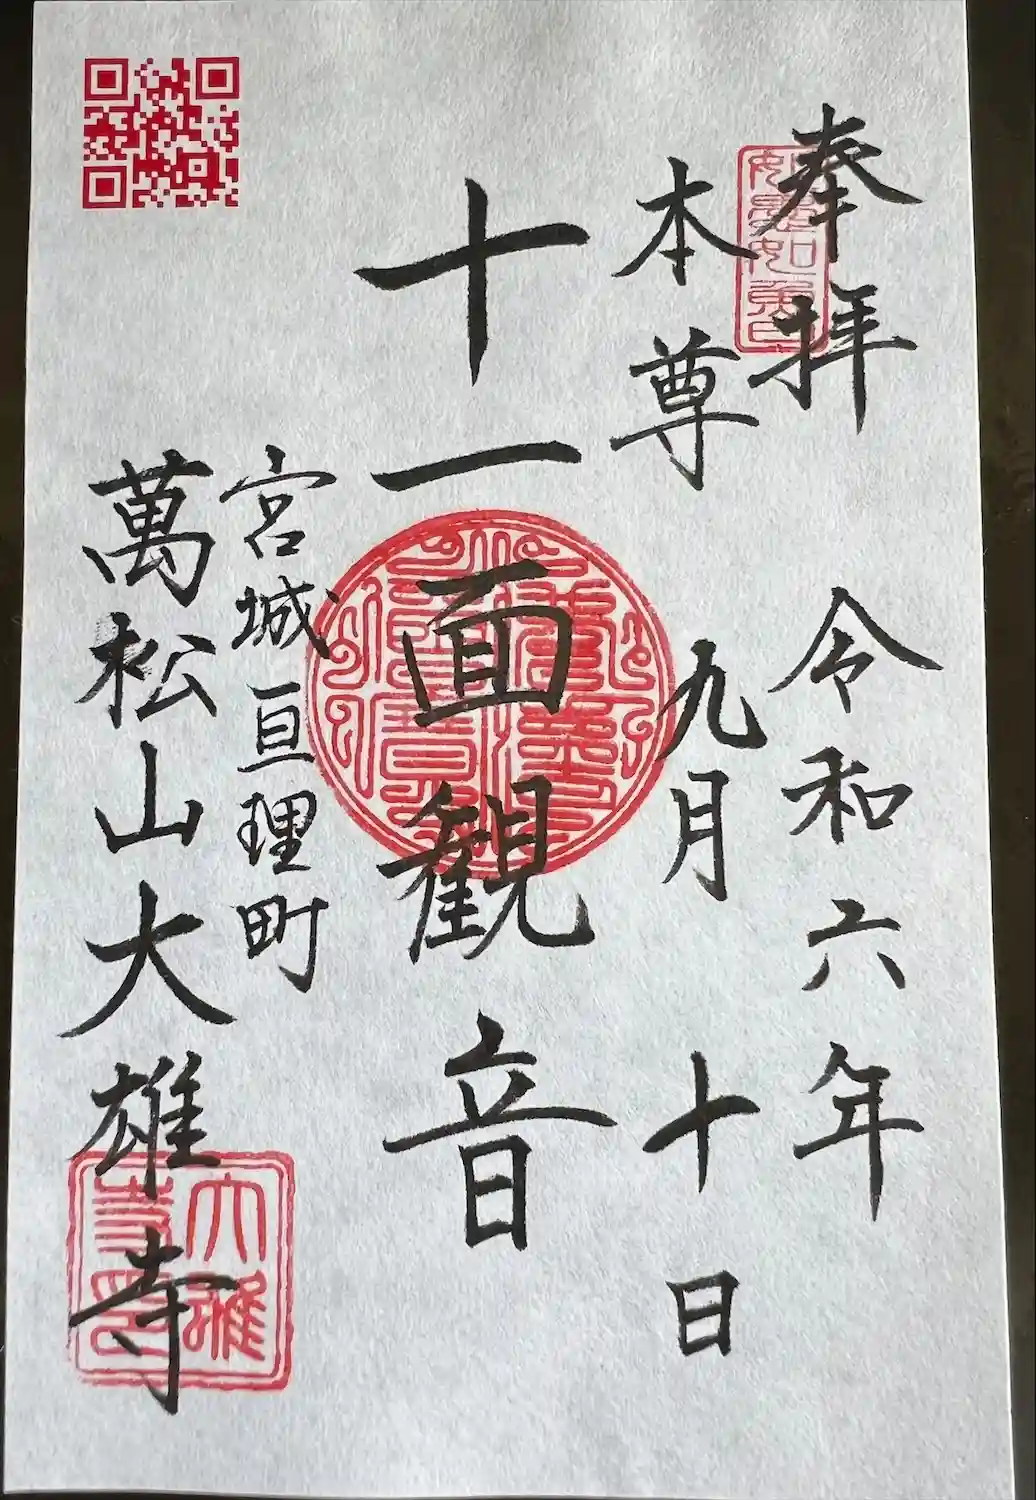 奉拝
令和六年
本尊
九月十日
十一面観音
宮城亘理町
萬松山大雄寺
大雄寺印